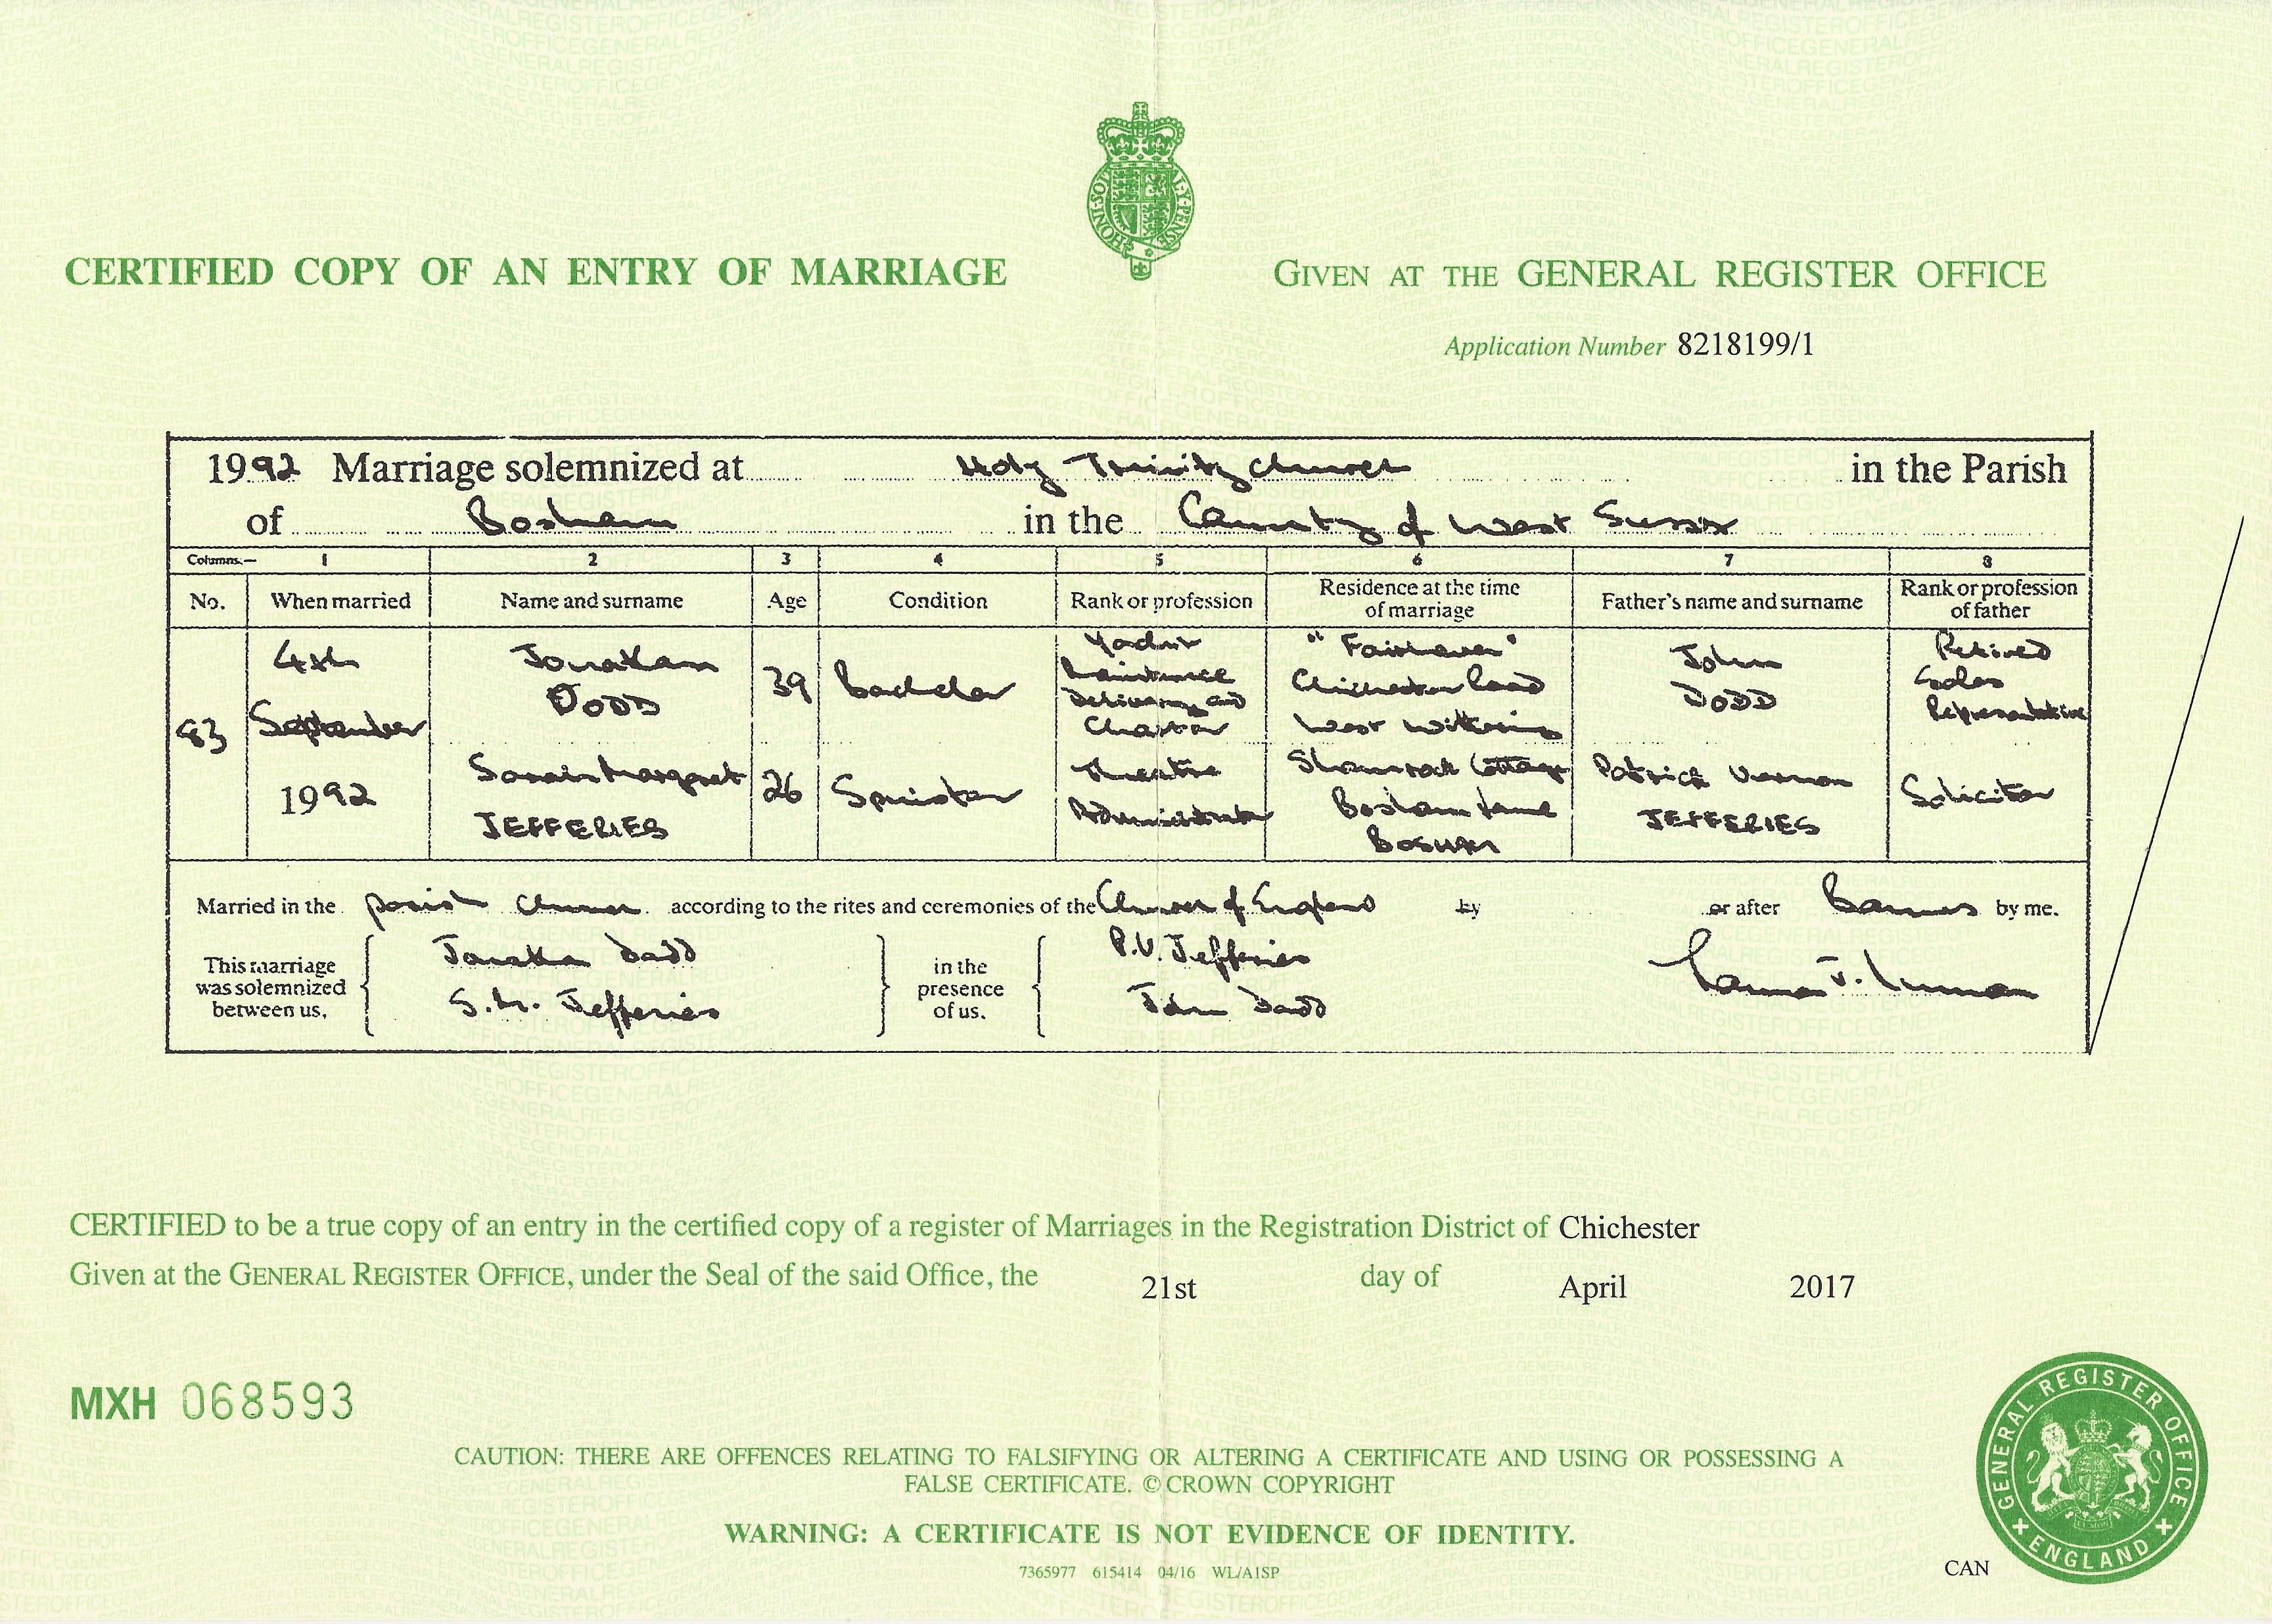 CERTIFIED COPY OF AN ENTRY OF MARRIAGE
GIVEN AT THE GENERAL REGISTER OFFICE
Application Number 8218199/1
1992 Marriage solemnized at Holy Trinity Church in the Parish
of Bosham in the County of West Sussex
Columns:— 1 2 3 4 5 6 7 8
No. When married Name and surname Age Condition Rank or profession Residence at the time of marriage Father's name and surname Rank or profession of father
83
4th
September
1992
Jonathan
DODD
39
Bachelor
Yacht
Maintenance
Delivery and
Charter
"Fairhaven"
Chichester Road
West Wittering
John
DODD
Retired
Sales
Representative
Sarah Margaret
JEFFERIES
26
Spinster
Theatre
Administrator
Shamrock Cottage
Bosham Lane
BOSHAM
Patrick Vernon
JEFFERIES
Solicitor
Married in the parish church according to the rites and ceremonies of the Church of England by or after Banns by me.
This marriage was solemnized between us,
Jonathan Dodd
S.M. Jefferies
in the presence of us.
P.V. Jefferies
John Dodd
CERTIFIED to be a true copy of an entry in the certified copy of a register of Marriages in the Registration District of Chichester
Given at the GENERAL REGISTER OFFICE, under the Seal of the said Office, the 21st day of April 2017
MXH 068593
CAUTION: THERE ARE OFFENCES RELATING TO FALSIFYING OR ALTERING A CERTIFICATE AND USING OR POSSESSING A
FALSE CERTIFICATE. © CROWN COPYRIGHT
WARNING: A CERTIFICATE IS NOT EVIDENCE OF IDENTITY.
7365977 615414 04/16 WL/A1SP
CAN
GENERAL REGISTER OFFICE
ENGLAND